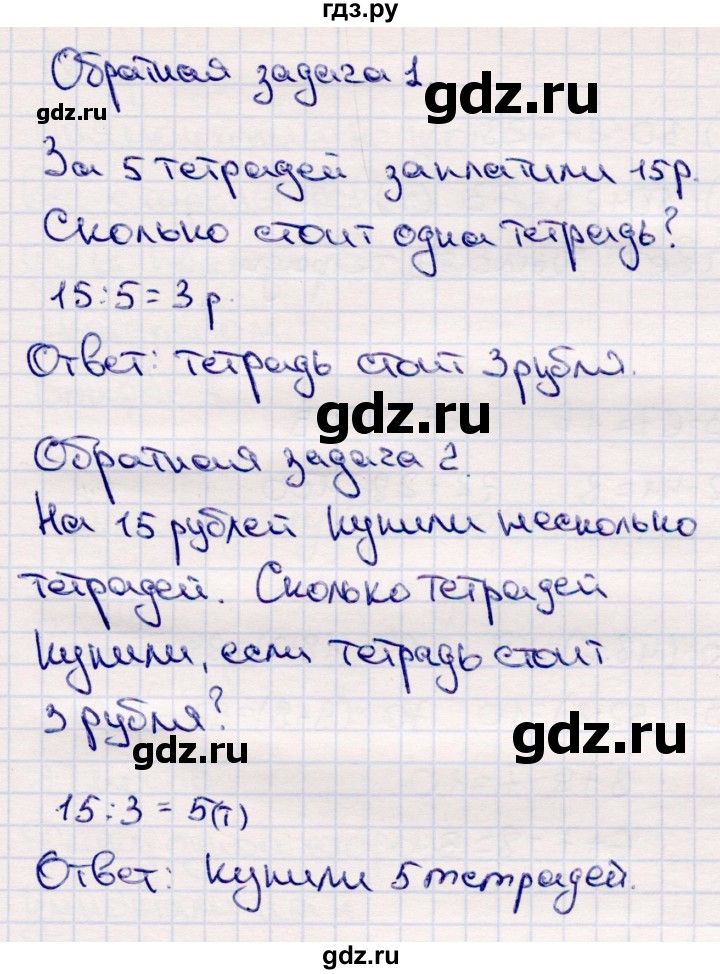 гдз.ру
Обратная задача 1
gdz.ru
gdz.ru
За 5 тетрадей заплатили 15р.
Сколько стоит одна тетрадь?
15:5=3 р.
Ответ: тетрадь стоит 3 рубля.
gdz.ru
Обратная задача 2.
На 15 рублей купили несколько
тетрадей. Сколько тетрадей
купили, если тетрадь стоит
3 рубля?
gdz.ru
gdz.ru
15:3=5(т)
Ответ: купили 5 тетрадей.
gdz.ru